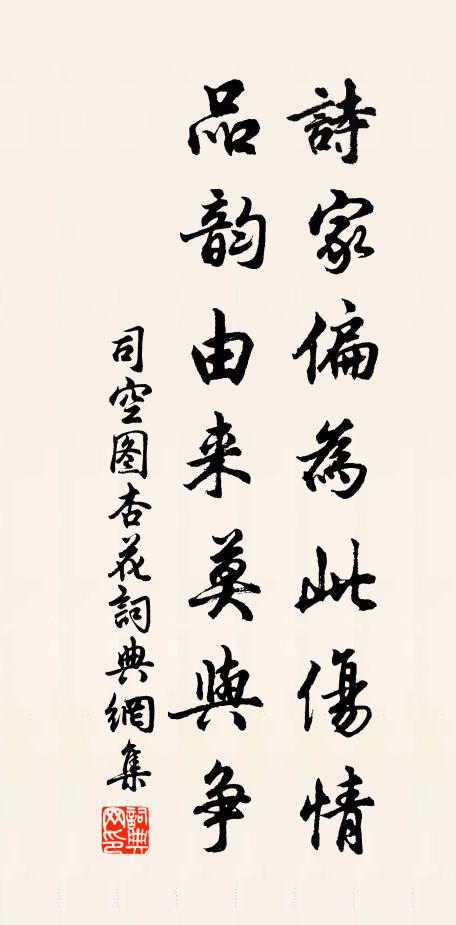 詩家偏為此傷情
品韵由来莫與争
司空图杏花詞典網集
詞典網印